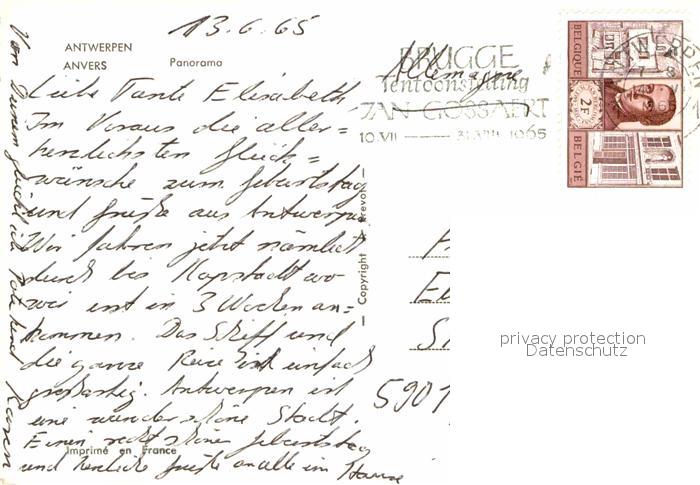 13.6.65
ANTWERPEN
ANVERS
Panorama
Liebe Tante Elisabeth
Im Voraus die aller=
herzlichsten Glück=
wünsche zum Geburtstag
und Grüße aus Antwerpen
Wir fahren jetzt nämlich
durch bis Kapstadt wo
wir erst in 3 Wochen an=
kommen. Das Schiff und
die ganze Reise ist einfach
großartig. Antwerpen ist
eine wunderschöne Stadt.
Einen recht schönen Geburtstag
und herzliche Grüße an alle im Hause
Von Deinem
und Karen
Imprimé en France
Copyright
Allemagne
BRUGGE
Tentoonstelling
JAN GOSSAERT
10.VII — 31.VIII 1965
ANTWERPEN
BELGIQUE
2F
BELGIE
590
privacy protection
Datenschutz